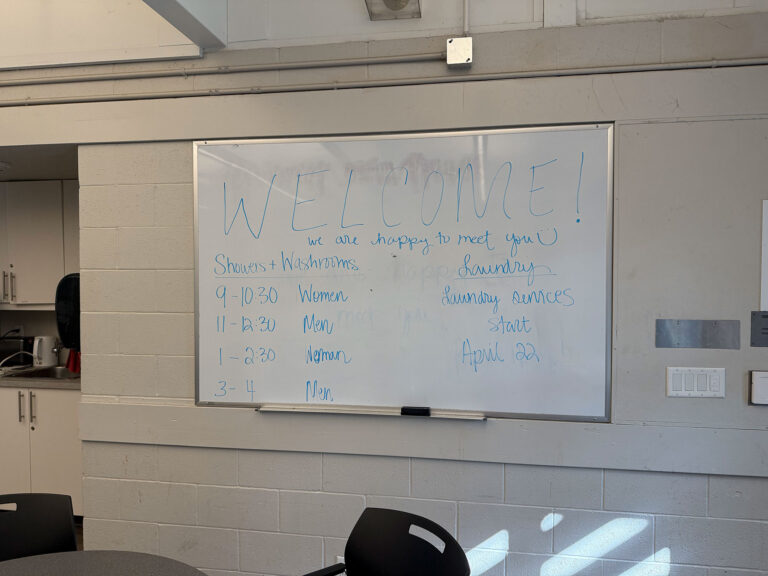 WELCOME!
we are happy to meet you
Showers + Washrooms
9-10:30 Women
11-12:30 Men
1-2:30
3-4 Men
Laundry
Laundry services
start
April 22